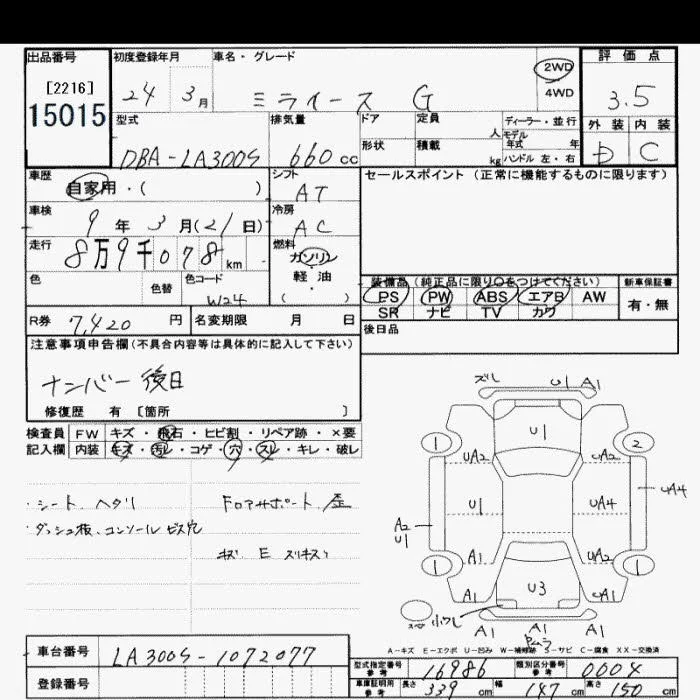 出品番号 初度登録年月 車名・グレード 評価点
[2216] 24 3月 ミライース G 2WD 4WD 3.5
15015
型式 排気量 ドア 定員 人 ディーラー・並行 外装 内装
DBA-LA300S 660cc 形状 積載 kg モデル年式 年 ハンドル 左・右 D C
車歴 シフト セールスポイント (正常に機能するものに限ります)
自家用・( ) AT
車検 冷房
9年3月(21日) AC
走行 燃料
8万9千078km ガソリン
色 色替 色コード 軽油 装備品 (純正品に限り○をつけてください) 新車保証書
W24 ( ) PS PW ABS エアB AW 有・無
SR ナビ TV カワ
R券 7,420円 名変期限 月 日 後日品
注意事項申告欄(不具合内容等は具体的に記入して下さい)
ナンバー後日
修復歴 有 [箇所 ]
検査員 FW キズ・飛石・ヒビ割・リペア跡・×要
記入欄 内装 キズ・汚レ・コゲ・穴・スレ・キレ・破レ
・シート ヘタリ
ダッシュ板、コンソール ビス穴
Fロアサポート 歪
キズ E スリキズ
ズレ U1 A1
1 U1 2
UA2 UA2
A2 U1 U1 UA4 UA4
A1 UA2
1 U3 1
A1 UA1
A1 A1
A-キズ E-エクボ U-凹み W-補修跡 S-サビ C-腐食 XX-交換済
車台番号 LA300S-1072077
登録番号
型式指定番号 参考 16986 類別区分番号 参考 0004
車庫証明用 参考 長さ 339cm 幅 147cm 高さ 150cm